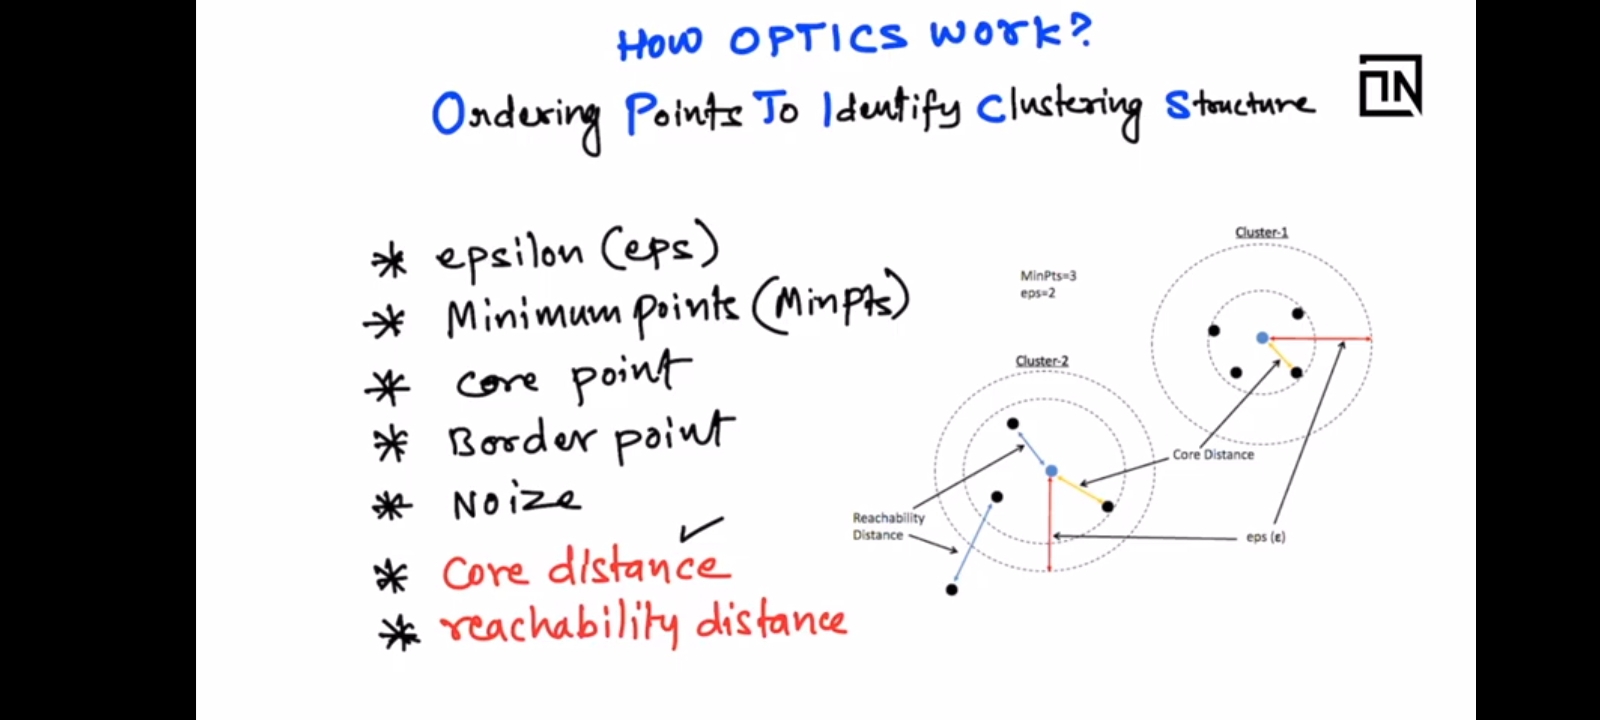 How OPTICS WORK?
Ordering Points To Identify Clustering Structure
* epsilon (eps)
* Minimum points (MinPts)
* Core point
* Border point
* Noize
* Core distance
* reachability distance
Cluster-1
MinPts=3
eps=2
Cluster-2
Core Distance
Reachability
Distance
eps (ε)